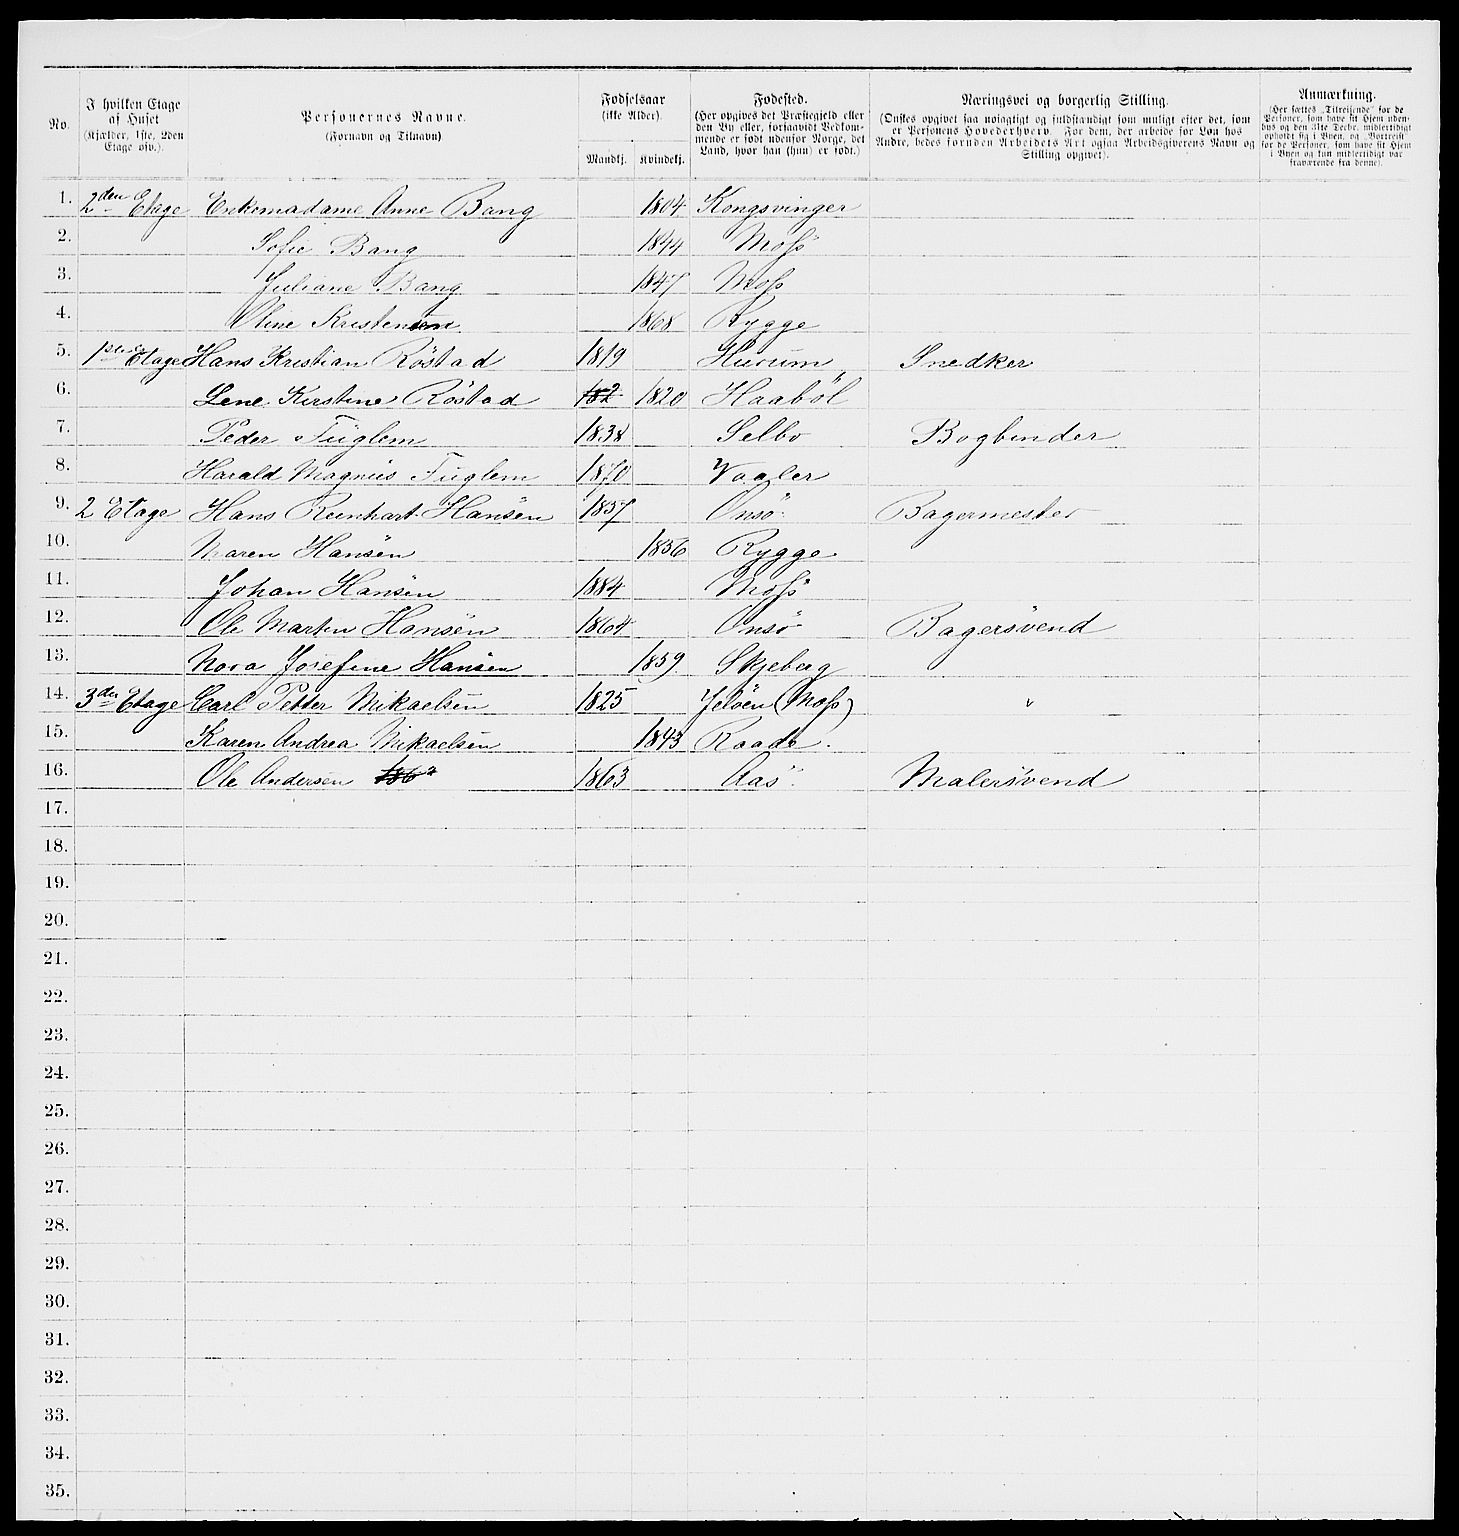 No.
I hvilken Etage
af Huset
(Kjælder, 1ste, 2den
Etage osv.).
Personernes Navne.
(Fornavn og Tilnavn)
Fødselsaar
(ikke Alder).
Mandkj. Kvindekj.
Fødested.
(Her opgives det Præstegjeld eller
den By eller, forsaavidt Vedkom-
mende er født udenfor Norge, det
Land, hvor han (hun) er født.)
Næringsvei og borgerlig Stilling.
(Ønskes opgivet saa nøiagtigt og fuldstændigt som muligt efter det, som
er Personens Hovederhverv. For dem, der arbeide for Løn hos
Andre, bedes foruden Arbeidets Art ogsaa Arbeidsgiverens Navn og
Stilling opgivet).
Anmærkning.
(Her sættes „Tilreisende" for de
Personer, som have sit Hjem uden-
bys og den 31te Decbr. midlertidigt
opholdt sig i Byen, og „Bortreist"
for de Personer, som have sit Hjem
i Byen og kun midlertidigt var
fraværende fra denne).
1. 2den Etage Enkemadame Anne Bang 1804 Kongsvinger
2. Sofie Bang 1844 Moss
3. Juliane Bang 1847 Moss
4. Oline Kristensen 1868 Rygge
5. 1ste Etage Hans Kristian Röstad 1819 Hurum Snedker
6. Lene Kirstine Röstad 182 1820 Haaböl
7. Peder Fuglem 1838 Selbo Bogbinder
8. Harald Magnus Fuglem 1870 Vaaler
9. 2 Etage Hans Reinhart Hansen 1857 Onsö Bagermester
10. Maren Hansen 1856 Rygge
11. Johan Hansen 1884 Moss
12. Ole Martin Hansen 1864 Onsö Bagersvend
13. Nora Josefine Hansen 1859 Skjeberg
14. 3de Etage Carl Petter Mikaelsen 1825 Jelöen (Moss) "
15. Karen Andrea Mikaelsen 1843 Raade.
16. Ole Andersen 1863 Aas Malersvend
17.
18.
19.
20.
21.
22.
23.
24.
25.
26.
27.
28.
29.
30.
31.
32.
33.
34.
35.